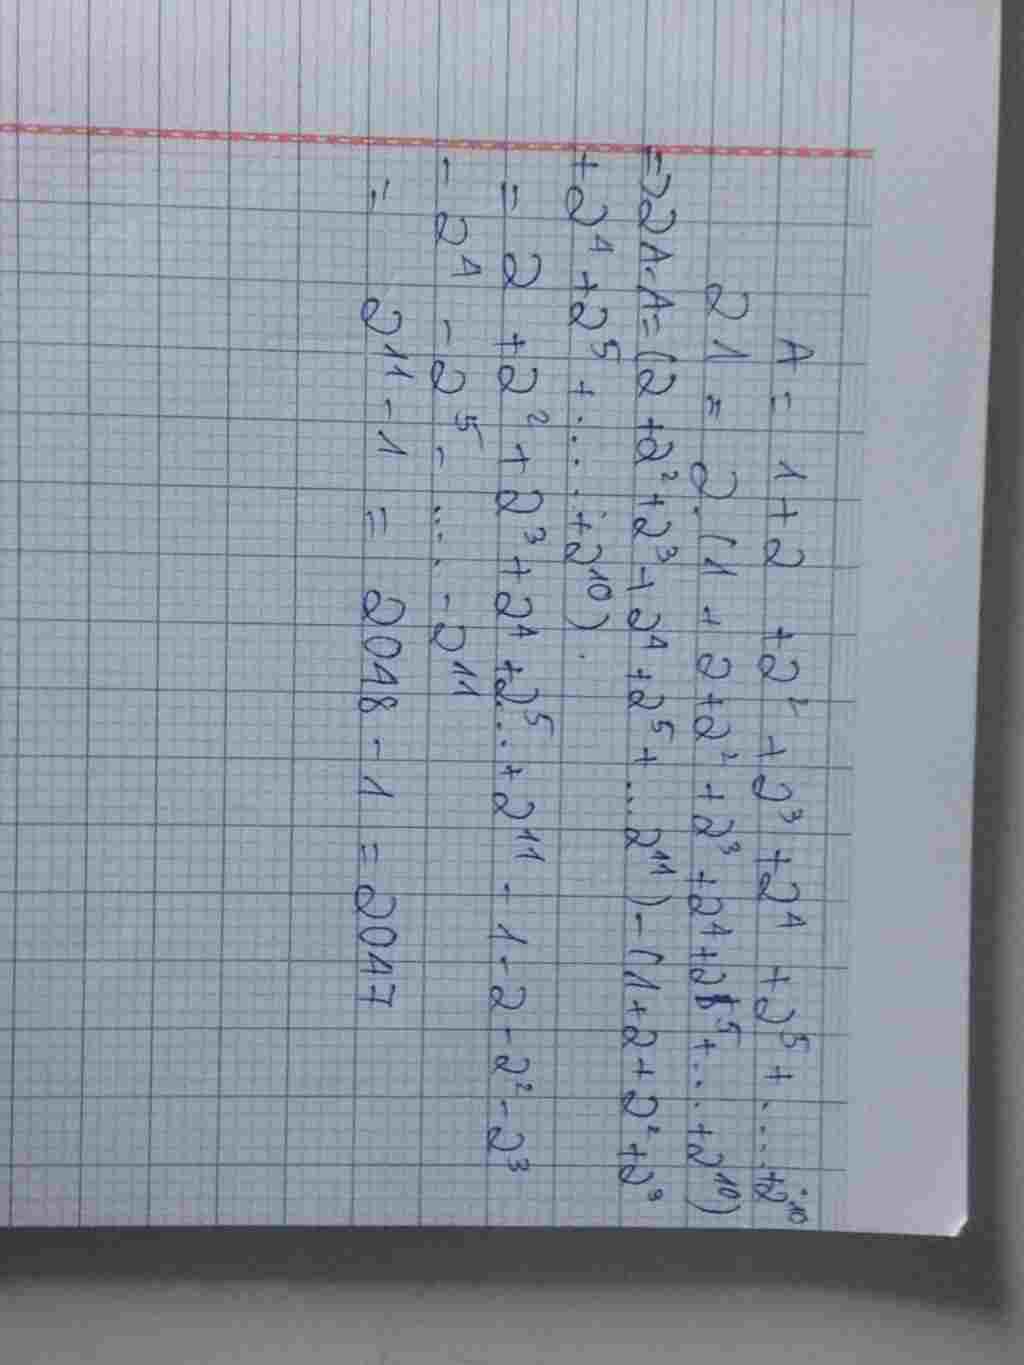 A = 1 + 2 + 2² + 2³ + 2⁴ + 2⁵ + ..... + 2¹⁰
2 1 = 2. (1 + 2 + 2² + 2³ + 2⁴ + 2⁵ + ... + 2¹⁰)
=> 2A - A = (2 + 2² + 2³ + 2⁴ + 2⁵ + ... 2¹¹) - (1 + 2 + 2² + 2³
+ 2⁴ + 2⁵ + .... + 2¹⁰).
= 2 + 2² + 2³ + 2⁴ + 2⁵ ... + 2¹¹ - 1 - 2 - 2² - 2³
- 2⁴ - 2⁵ - .... - 2¹¹
= 2¹¹ - 1 = 2048 - 1 = 2047